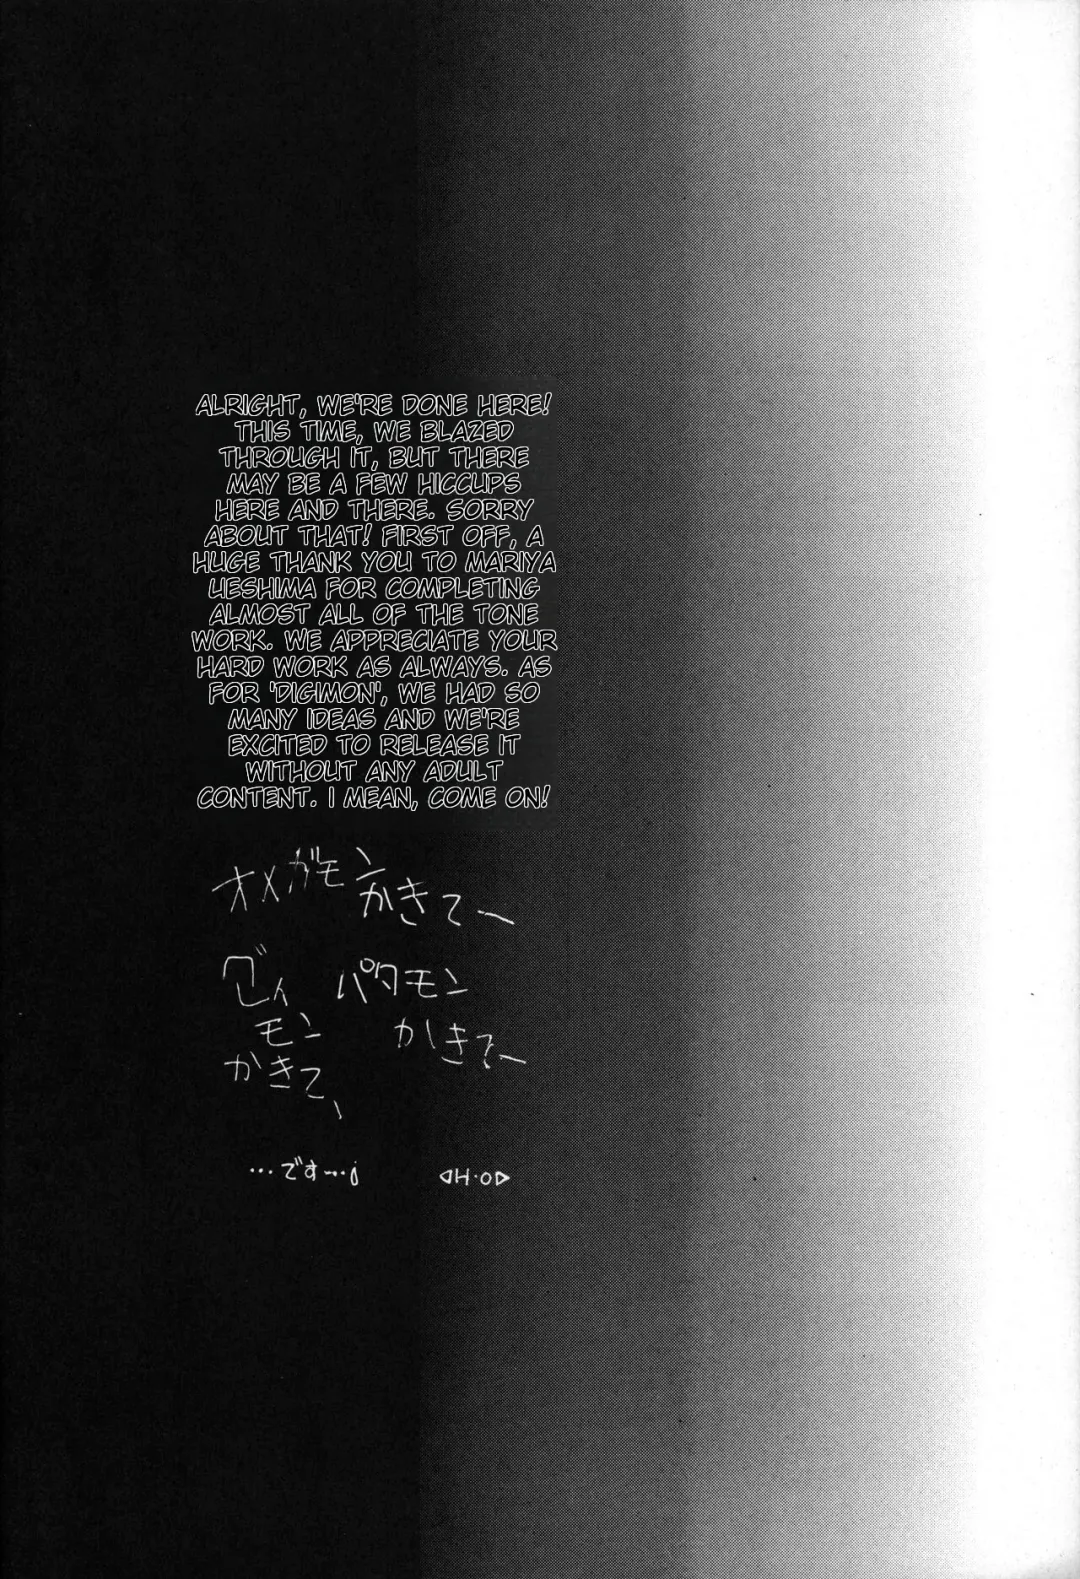 ALRIGHT, WE'RE DONE HERE!
THIS TIME, WE BLAZED
THROUGH IT, BUT THERE
MAY BE A FEW HICCUPS
HERE AND THERE. SORRY
ABOUT THAT! FIRST OFF, A
HUGE THANK YOU TO MARIYA
UESHIMA FOR COMPLETING
ALMOST ALL OF THE TONE
WORK. WE APPRECIATE YOUR
HARD WORK AS ALWAYS. AS
FOR 'DIGIMON', WE HAD SO
MANY IDEAS AND WE'RE
EXCITED TO RELEASE IT
WITHOUT ANY ADULT
CONTENT. I MEAN, COME ON!
オメガモン
かきてー
パタモン
かきてー
モン
かきて、
…です…
◁H・O▷